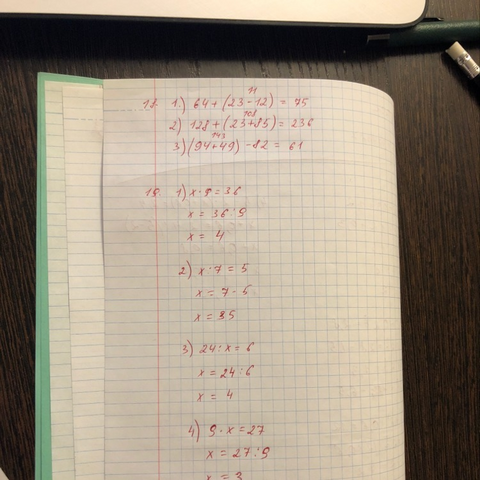 11
18. 1.) 64 + (23 - 12) = 75
108
2) 128 + (23 + 85) = 236
143
3) (94 + 49) - 82 = 61
19. 1) x · 9 = 36
x = 36 : 9
x = 4
2) x · 7 = 5
x = 7 · 5
x = 35
3) 24 : x = 6
x = 24 : 6
x = 4
4) 9 · x = 27
x = 27 : 9
x = 3